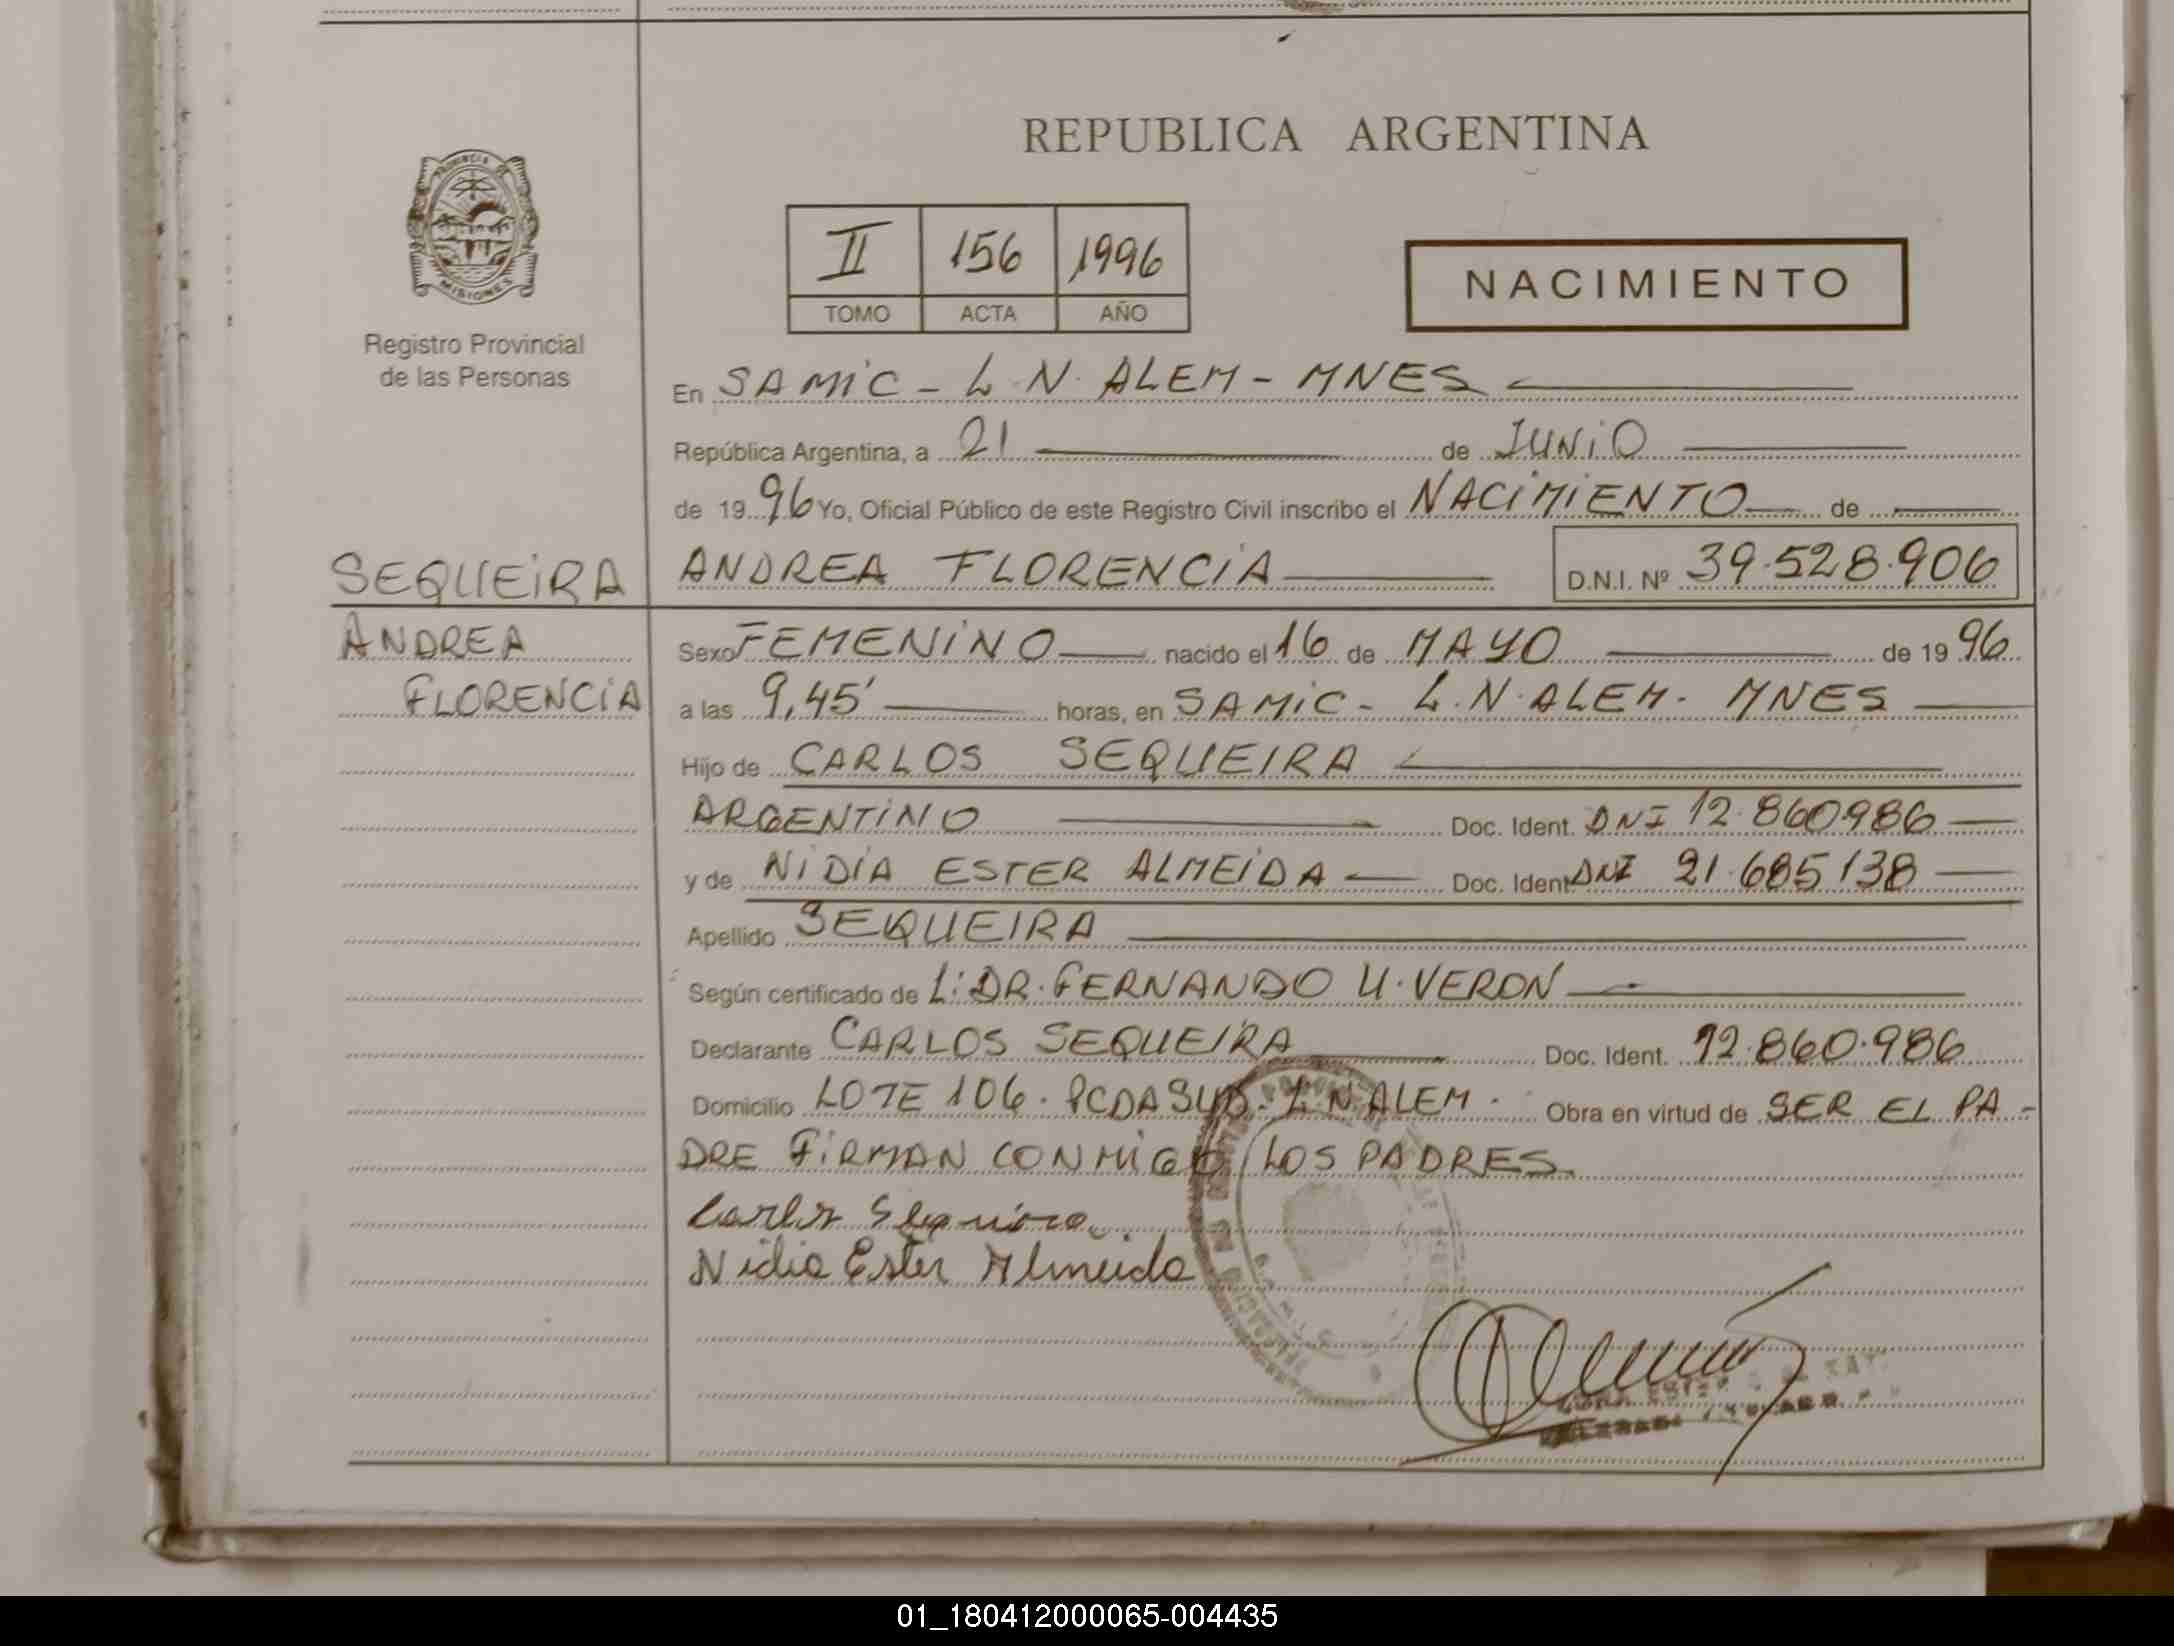 REPUBLICA ARGENTINA
PROVINCIA DE
MISIONES
Registro Provincial
de las Personas
II 156 1996
TOMO ACTA AÑO
NACIMIENTO
En SAMIC - L.N. ALEM - MNES
República Argentina, a 21 de JUNIO
de 1996 Yo, Oficial Público de este Registro Civil inscribo el NACIMIENTO de
SEQUEIRA ANDREA FLORENCIA D.N.I. Nº 39.528.906
ANDREA Sexo FEMENINO nacido el 16 de MAYO de 1996
FLORENCIA a las 9,45' horas, en SAMIC - L.N. ALEM. MNES
Hijo de CARLOS SEQUEIRA
ARGENTINO Doc. Ident. DNI 12.860986
y de NIDIA ESTER ALMEIDA Doc. Ident DNI 21.685138
Apellido SEQUEIRA
Según certificado de L: DR. FERNANDO U. VERON
Declarante CARLOS SEQUEIRA Doc. Ident. 12.860.986
Domicilio LOTE 106. PCDA SUD. L N ALEM. Obra en virtud de SER EL PA-
DRE FIRMAN CONMIGO LOS PADRES.
Carlos Sequeira
Nidia Ester Almeida
01_180412000065-004435